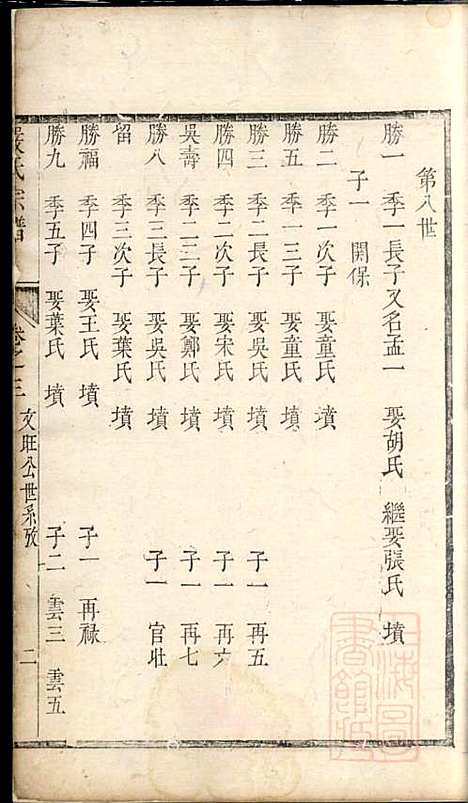 第八世
勝一 季一長子又名孟一 娶胡氏 繼娶張氏 墳
子一 開保
勝二 季一次子 娶童氏 墳
勝五 季一三子 娶童氏 墳
勝三 季二長子 娶吳氏 墳 子一 再五
勝四 季二次子 娶宋氏 墳 子一 再六
吳壽 季二三子 娶鄭氏 墳 子一 再七
勝八 季三長子 娶吳氏 墳 子一 官壯
留 季三次子 娶葉氏 墳
勝福 季四子 娶王氏 墳 子一 再禄
勝九 季五子 娶葉氏 墳 子二 雲三 雲五
氏宗譜 卷之三 文旺公世系攷 二
上海圖書館藏